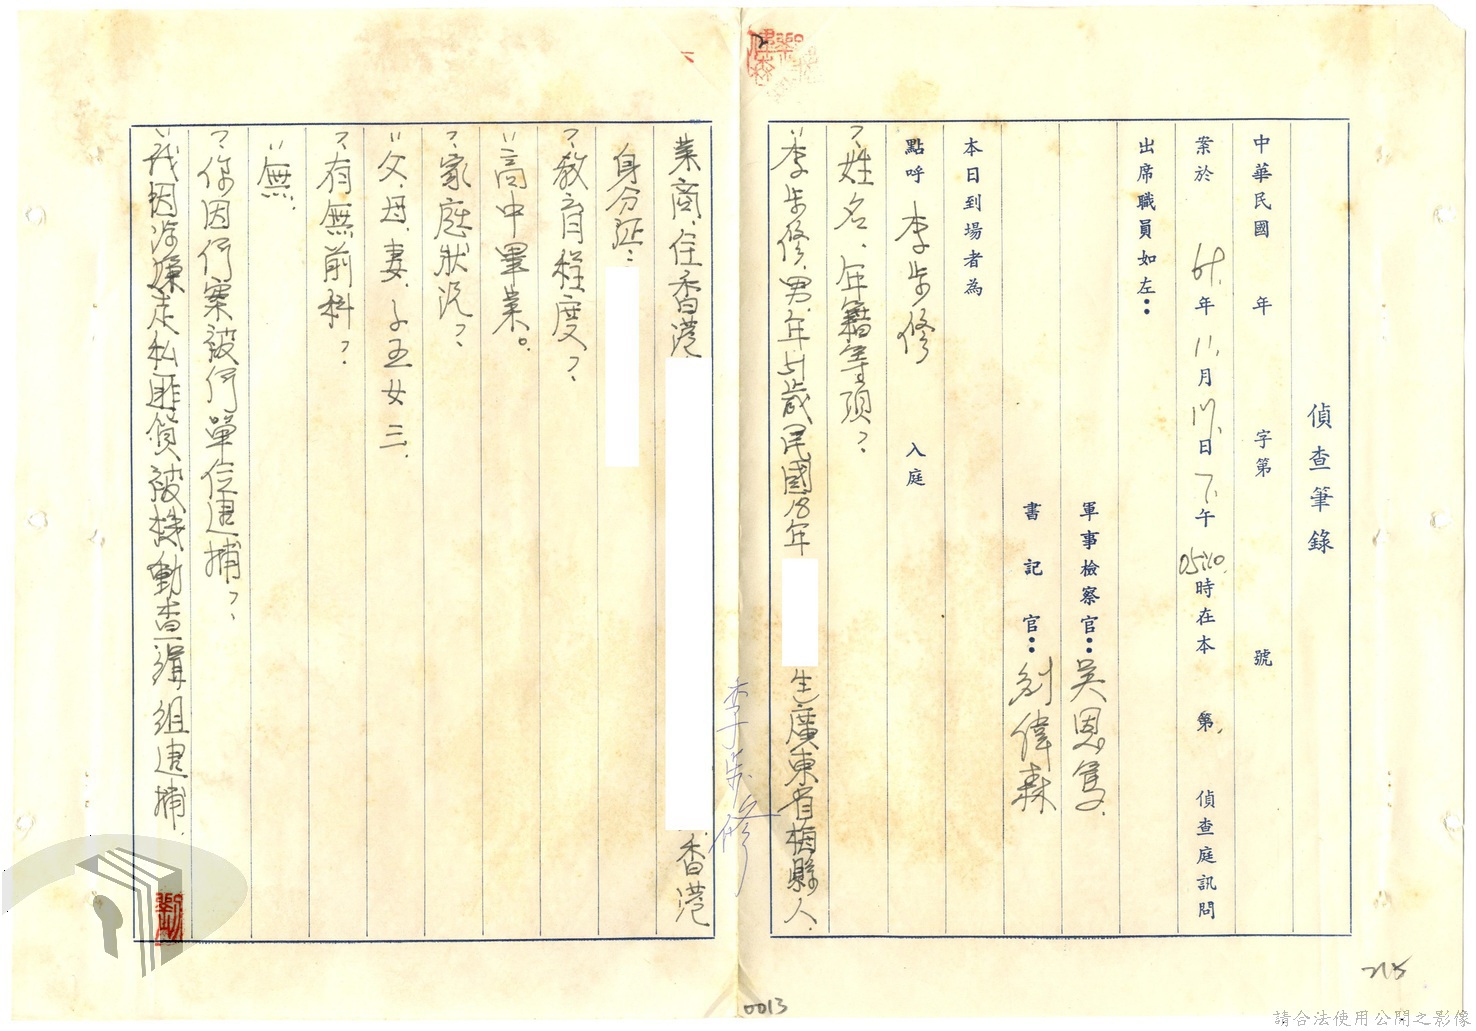 偵查筆錄
中華民國 年 字第 號
案於 61.年 11.月 17.日 下.午 05:10.時在本 第 偵查庭訊問
出席職員如左：
軍事檢察官：吳恩隻.
書記官：劉偉森
本日到場者為
點呼 李步修 入庭
？姓名、年籍等項？
：李步修.男.年 歲民國18年 生廣東省梅縣人.
李步修
業商.住香港. 香港
身分証：
？教育程度？
：高中畢業。
？家庭狀況？
：父.母.妻.子五女三.
？有無前科？
：無.
？你因何案被何單位逮捕？
：我因涉嫌走私匪貨被機動查緝組逮捕.
0013
215
請合法使用公開之影像